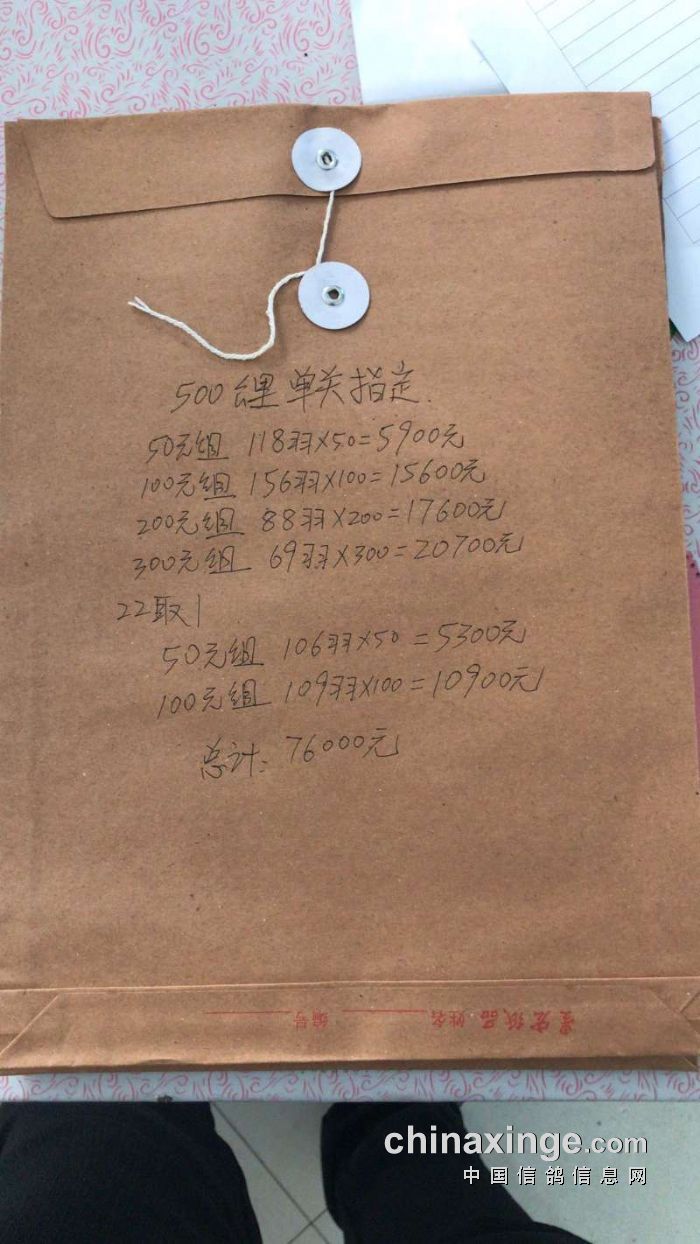 500公里单关指定.
50元组 118羽×50=5900元
100元组 156羽×100=15600元
200元组 88羽×200=17600元
300元组 69羽×300=20700元
22取1
50元组 106羽×50=5300元
100元组 109羽×100=10900元
总计: 76000元
星宏纸品 姓名 编号
chinaxinge.com
中国信鸽信息网